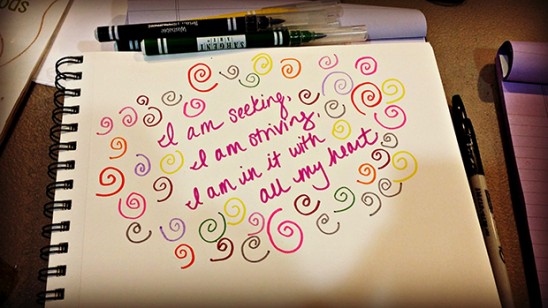 I am seeking,
I am striving,
I am in it with
all my heart
SARGENT
ART
Washable